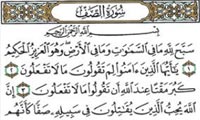 سورة الصف
بسم الله الرحمن الرحيم
سبح لله ما في السموات وما في الأرض وهو العزيز الحكيم
١ يأيها الذين ءامنوا لم تقولون ما لا تفعلون ٢
كبر مقتا عند الله أن تقولوا ما لا تفعلون ٣ إن
الله يحب الذين يقتلون في سبيله صفا كأنهم